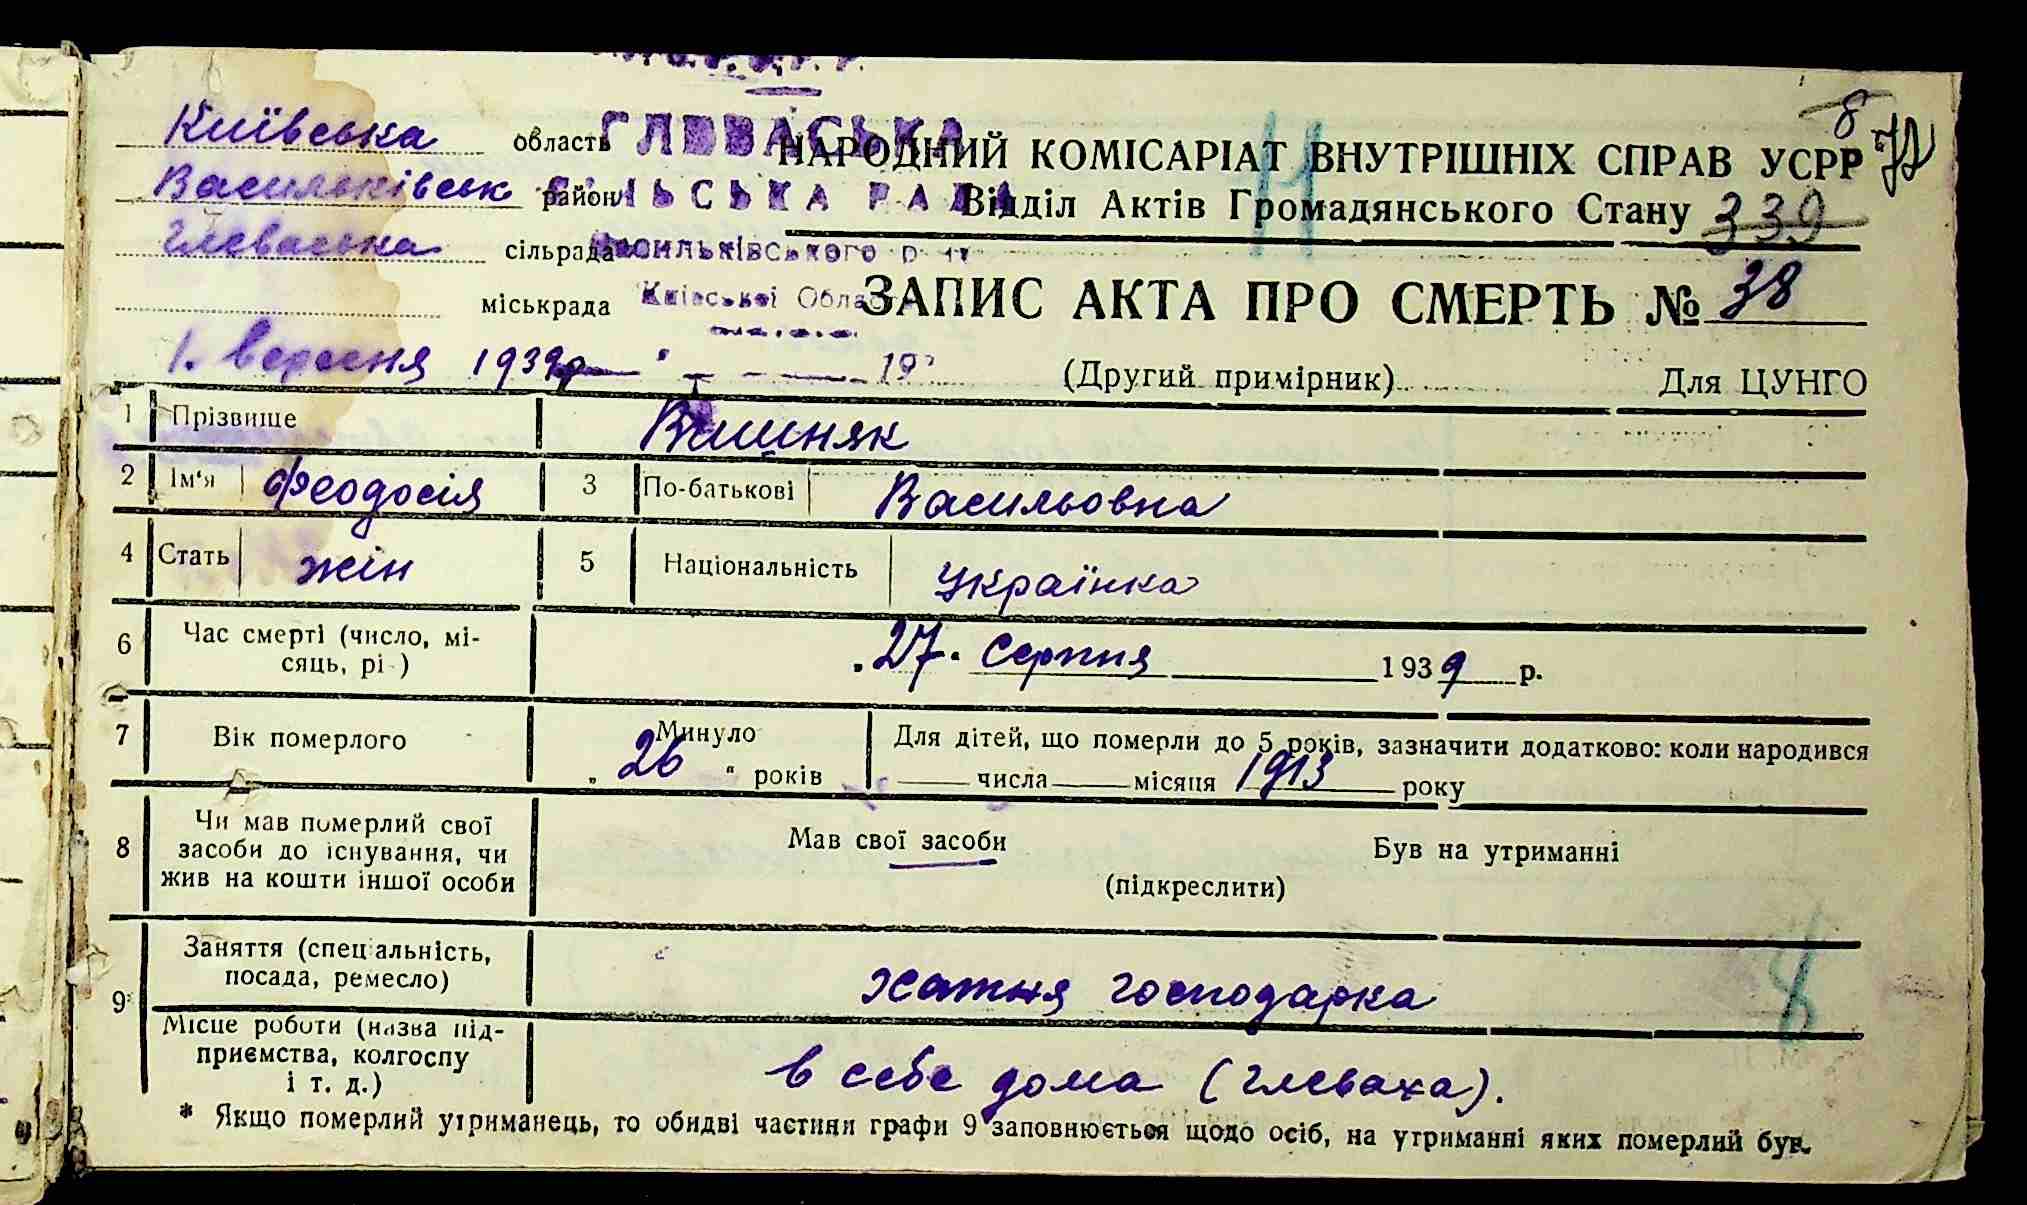 Київська область ГЛЕВАСЬКА НАРОДНИЙ КОМІСАРІАТ ВНУТРІШНІХ СПРАВ УСРР
8
72
Васильківськ район СІЛЬСЬКА РАДА Відділ Актів Громадянського Стану 339
Глеваська сільрада Васильківського р-ну
міськрада Київської Області ЗАПИС АКТА ПРО СМЕРТЬ № 38
1. вересня 1939р 19 (Другий примірник) Для ЦУНГО
1 Прізвище Вишняк
2 Ім'я Феодосія 3 По-батькові Васильовна
4 Стать жін 5 Національність Українка
6 Час смерті (число, мі-
сяць, рі ) 27. Серпня 1939 р.
7 Вік померлого Минуло
„ 26 “ років
Для дітей, що померли до 5 років, зазначити додатково: коли народився
числа місяця 1913 року
8 Чи мав померлий свої
засоби до існування, чи
жив на кошти іншої особи
Мав свої засоби Був на утриманні
(підкреслити)
9 Заняття (спеціальність,
посада, ремесло) хатня господарка
Місце роботи (назва під-
приємства, колгоспу
і т. д.) в себе дома (Глеваха).
* Якщо померлий утриманець, то обидві частини графи 9 заповнюється щодо осіб, на утриманні яких померлий був.
8